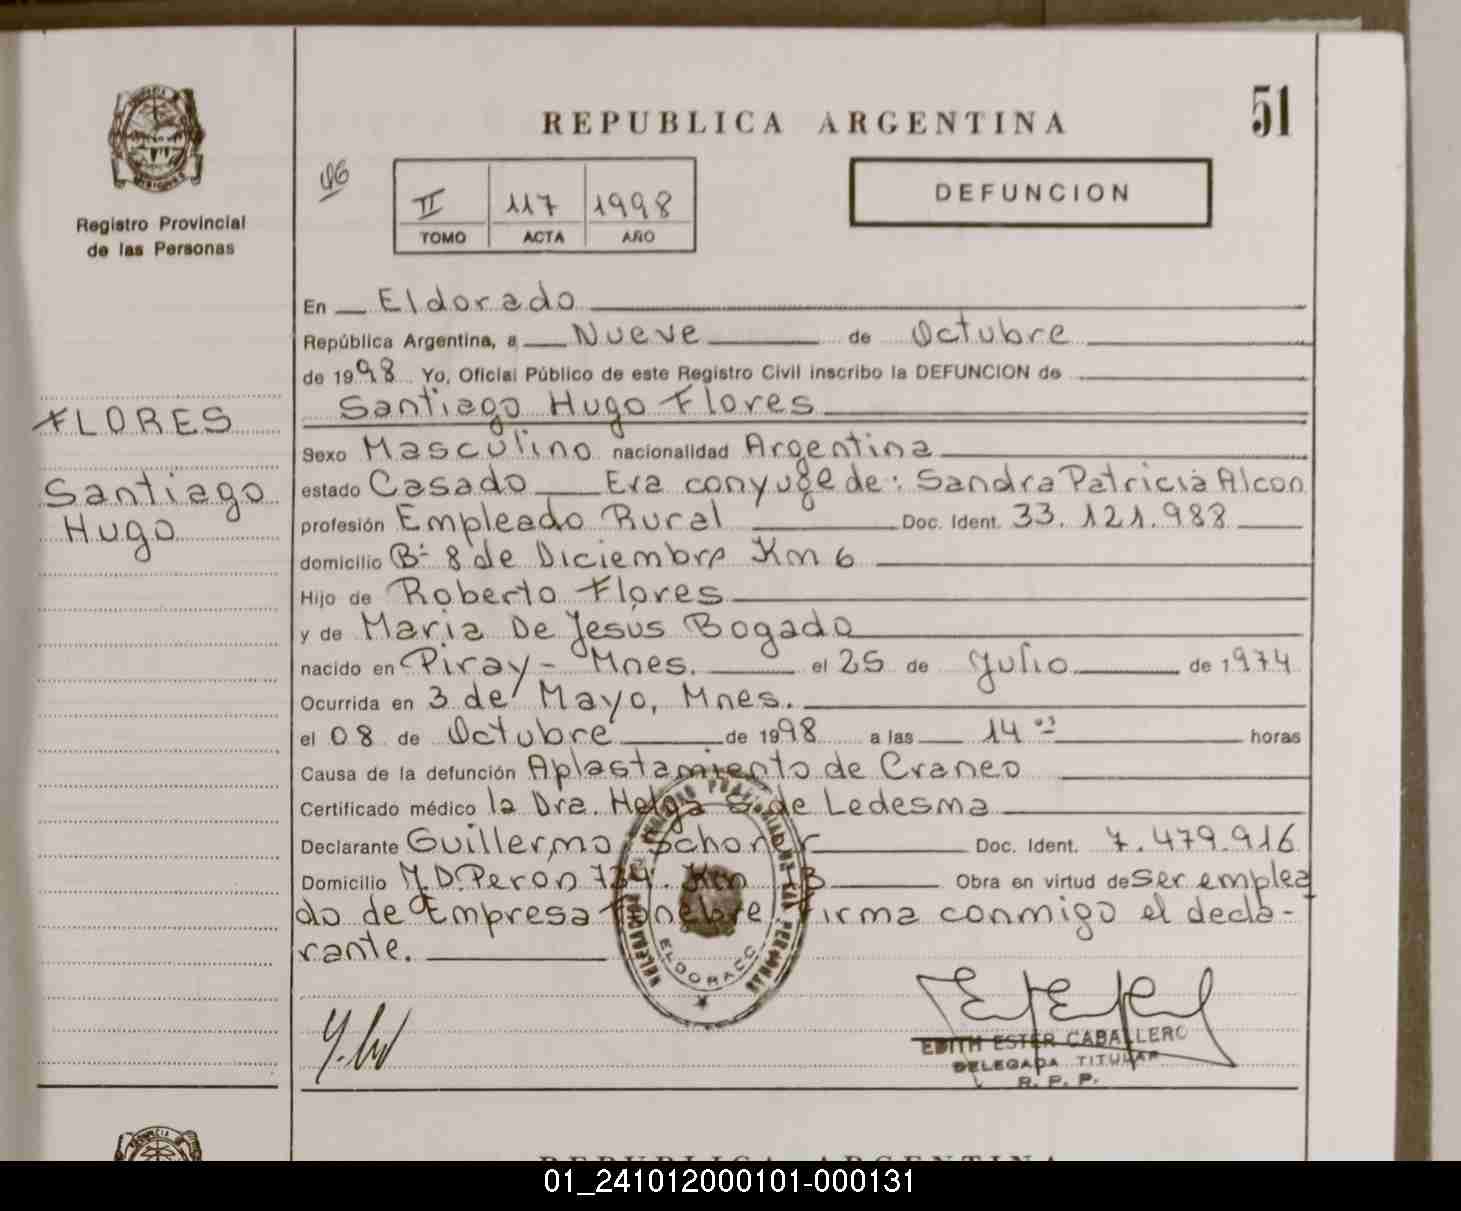 REPUBLICA ARGENTINA
51
PROVINCIA
MISIONES
Registro Provincial
de las Personas
II 117 1998
TOMO ACTA AÑO
DEFUNCION
FLORES
Santiago
Hugo
En Eldorado
República Argentina, a Nueve de Octubre
de 1998 Yo, Oficial Público de este Registro Civil inscribo la DEFUNCION de
Santiago Hugo Flores
Sexo Masculino nacionalidad Argentina
estado Casado Era conyuge de: Sandra Patricia Alcon
profesión Empleado Rural Doc. Ident. 33.121.988
domicilio Bº 8 de Diciembre Km 6
Hijo de Roberto Flores
y de Maria De Jesús Bogado
nacido en Piray - Mnes. el 25 de Julio de 1974
Ocurrida en 3 de Mayo, Mnes.
el 08 de Octubre de 1998 a las 14 horas
Causa de la defunción Aplastamiento de Craneo
Certificado médico la Dra. Helga S. de Ledesma
Declarante Guillermo Schoner Doc. Ident. 7.479.916
Domicilio J.D.Peron 734. Km Obra en virtud de Ser emplea
do de Empresa Fúnebre. Firma conmigo el decla-
rante.
ELDORADO
EDITH ESTER CABALLERO
DELEGADA TITULAR
R. P. P.
REPUBLICA ARGENTINA
01_241012000101-000131